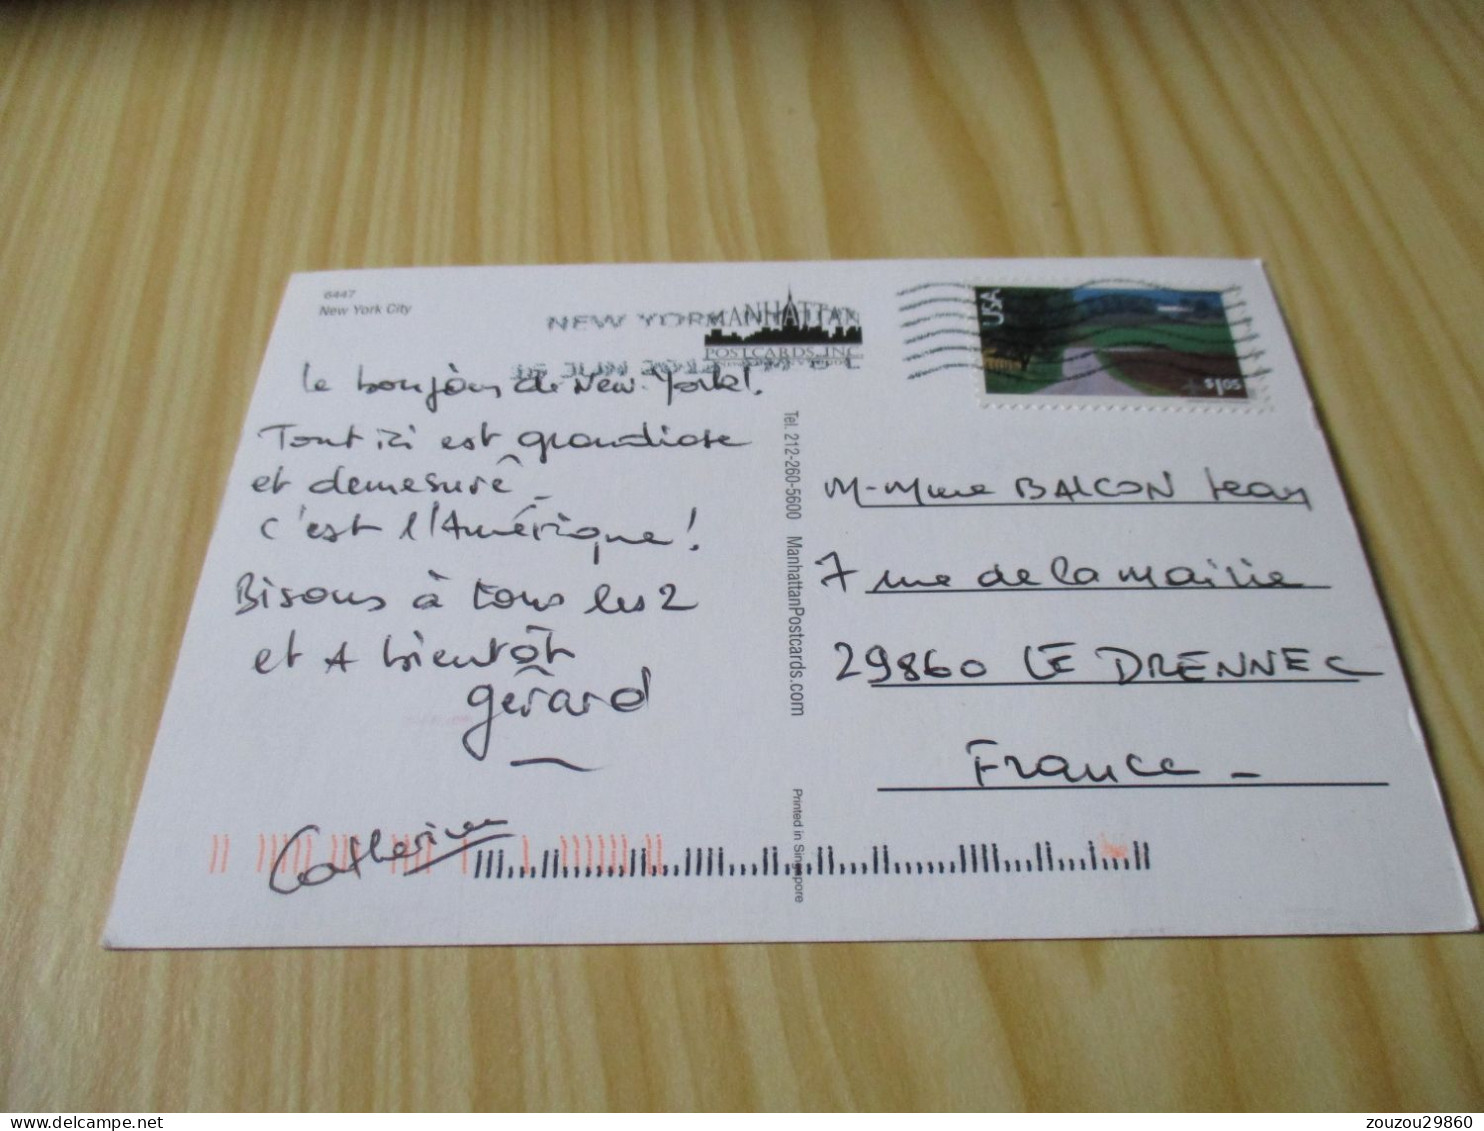 6447
New York City
NEW YORK
MANHATTAN
POSTCARDS, INC.
05 JUN 2012 PM 5 L
USA
$1.05
Le bonjour de New-York!.
Tout ici est grandiose
et demesuré
c'est l'Amérique!
Bisous à tous les 2
et A bientôt
gérard
Catherine
Tel. 212-260-5600 ManhattanPostcards.com
Printed in Singapore
M-Mme BALCON Jean
7 rue de la mairie
29860 LE DRENNEC
France -
zouzou29860